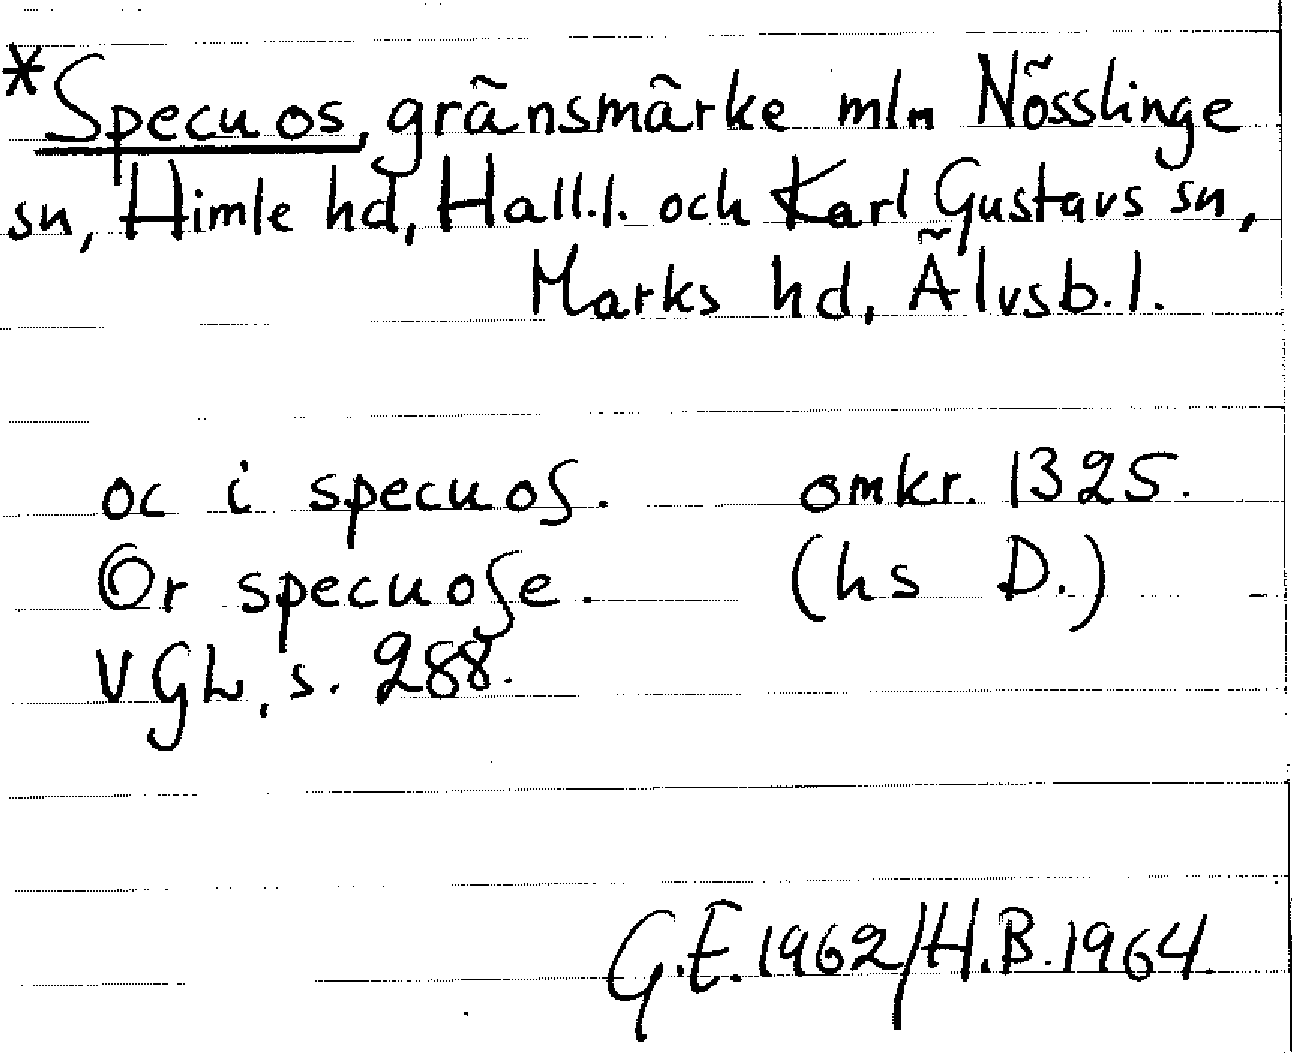 *Specuos, gränsmärke mln Nösslinge
sn, Himle hd, Hall.l. och Karl Gustavs sn,
Marks hd, Älvsb.l.
oc i specuoſ. omkr. 1325.
Or specuoſe. (hs D.)
VGL, s. 288.
G.E.1962/H.B.1964.